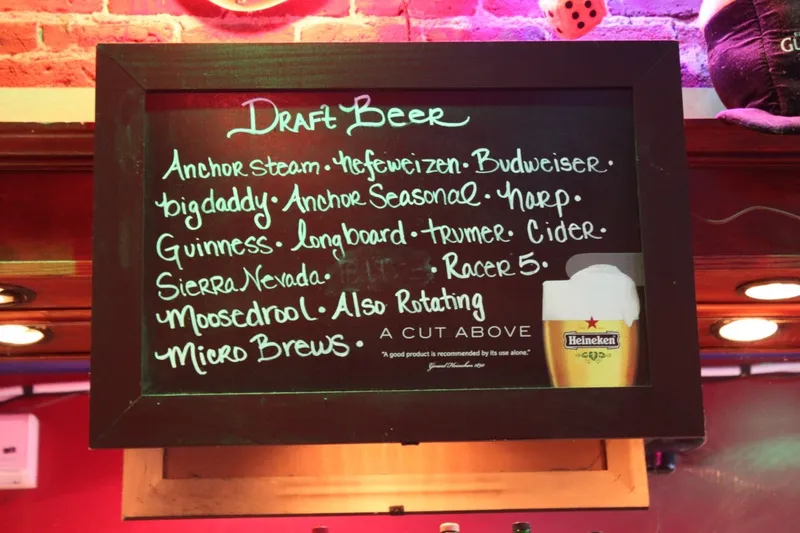 Draft Beer
Anchor Steam · Hefeweizen · Budweiser ·
bigdaddy · Anchor Seasonal · Harp ·
Guinness · longboard · trumer · Cider ·
Sierra Nevada · · Racer 5 ·
Moosedrool · Also Rotating
Micro Brews ·
A CUT ABOVE
"A good product is recommended by its use alone."
Heineken
GU